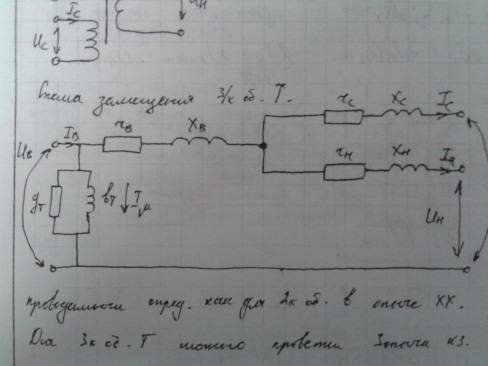 Iс
Uс
Uн
Схема замещения 3/х об. Т.
rс Xс Iс
Uв Iв rв Xв
rн Xн Iн
gт bт Iμ
Uн
проводимости опред. как для 2х об. в опыте ХХ.
Для 3х об. Т можно провести 3 опыта КЗ.